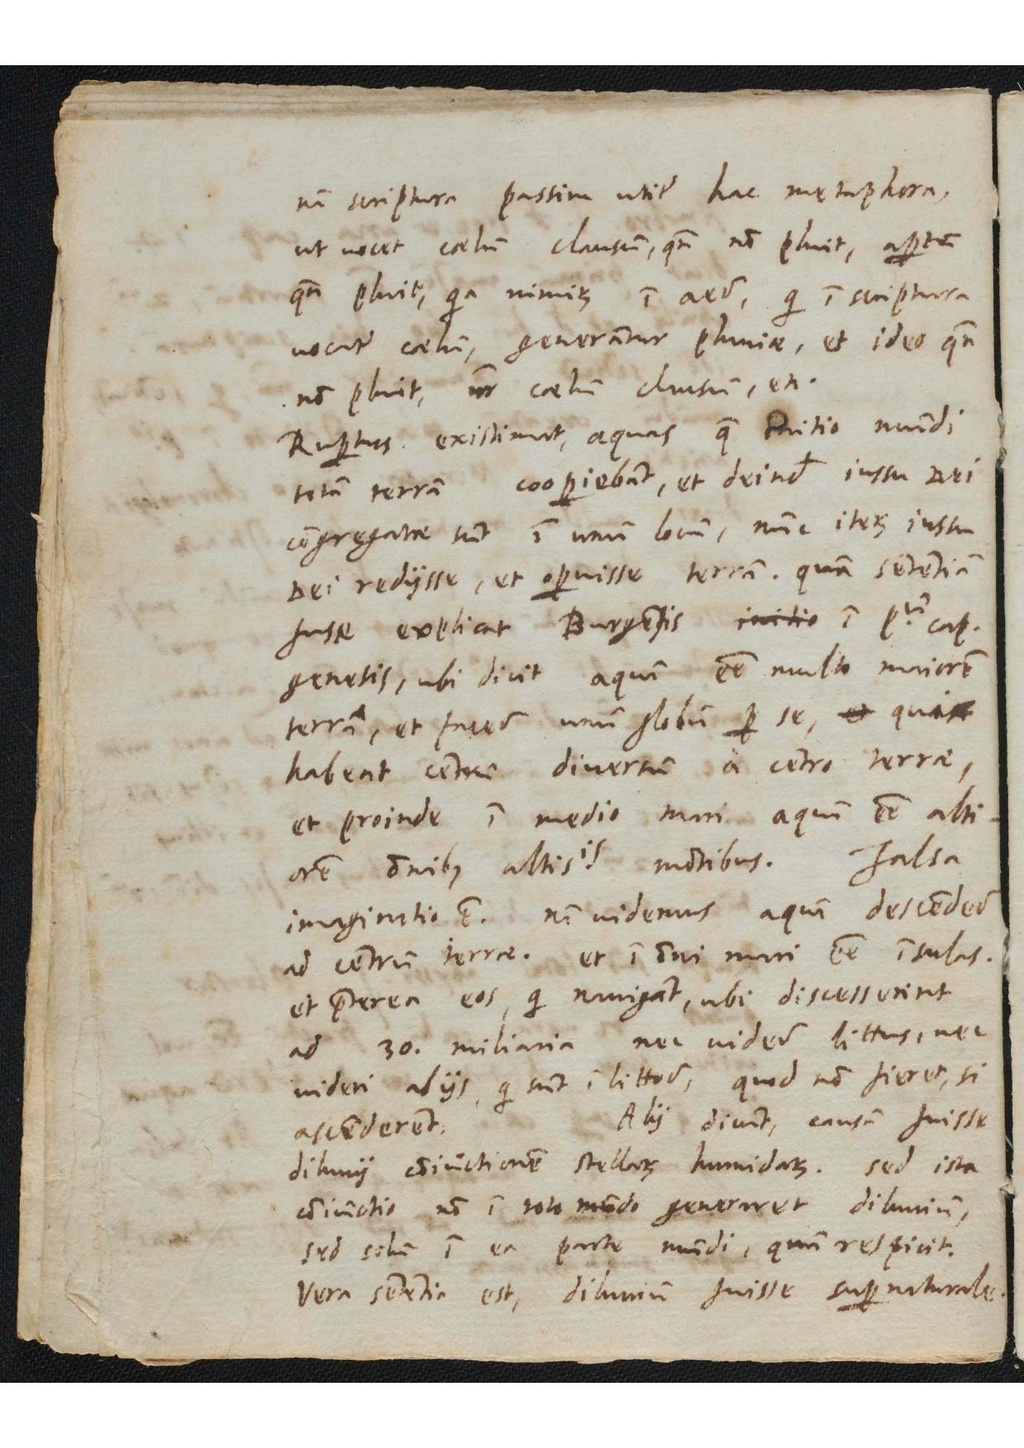 nā scriptura passim utit᷑ hac metaphora,
ut vocet cœlū clausū, qn̄ nō pluit, apertū
qn̄ pluit, qa nimirꝫ ī aere, qi ī scriptura
vocat᷑ cœlū, generāntur pluviæ, et ideo qn̄
nō pluit, dr̄ cœlū clausū, etc.
Rupertus existimat, aquas q̄ initio mūndi
totā terrā cooꝑiebāt, et deinde iussu Dei
cōgregatæ sūt ī unū locū, nūnc iterꝫ iussu
Dei redijsse, et oꝑuisse terrā. quā sētētiā
fuse explicat Burgēsis ī pᵘᵐ cap.
genesis, ubi dicit aquā ēe multo maiorē
terrā, et facere unū globū ꝑ se, qui
habeat cētrū diversū à cētro terræ,
et proinde ī medio mari aquā ēe alti-
orē ōnibꝫ altisˢⁱˢ mōtibus. Falsa
imaginatio ē. nā videmus aquā descēdere
ad cētrū terræ. et ī ōni mari ēe īsulas.
et p̄terea eos, qi navigāt, ubi discesserint
ad 30. miliaria nec videre littus, nec
videri ab ijs, qi sūt ī littore, quod nō fieret, si
ascēderēt. Alij dicūt, causā fuisse
diluvij cōiūctionē stellarꝫ humidarꝫ. sed ista
cōiūctio nō ī toto mūdo generaret diluviū,
sed solū ī ea parte mūdi, quā respicit.
Vera sētētia est, diluviū fuisse suꝑnaturale.